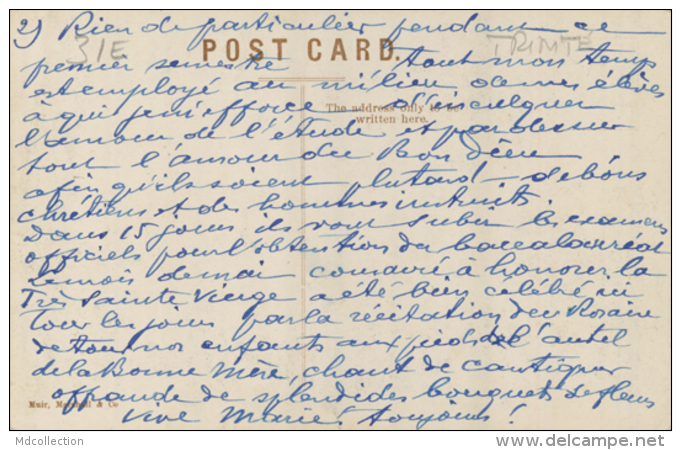 2) Rien de particulier pendant ce
31E
TRINITÉ
POST CARD.
premier semestre tout mon temps
est employé au milieu de mes élèves
The address only to be
written here.
à qui je m'efforce d'inculquer
l'amour de l'étude et par dessus
tout l'amour du Bon Dieu
afin qu'ils soient plus tard de bons
chrétiens et des hommes instruits.
Dans 15 jours ils vont subir les examens
officiels pour l'obtention du baccalauréat
Le mois de mai consacré à honorer la
Très Sainte Vierge a été bien célébré ici
tous les jours par la récitation du Rosaire
de tous nos enfants aux pieds de l'autel
de la Bonne Mère, chant de cantiques
offrande de splendides bouquets de fleurs
Muir, Marshall & Co
Vive Marie! toujours!
Mdcollection
www.delcampe.net